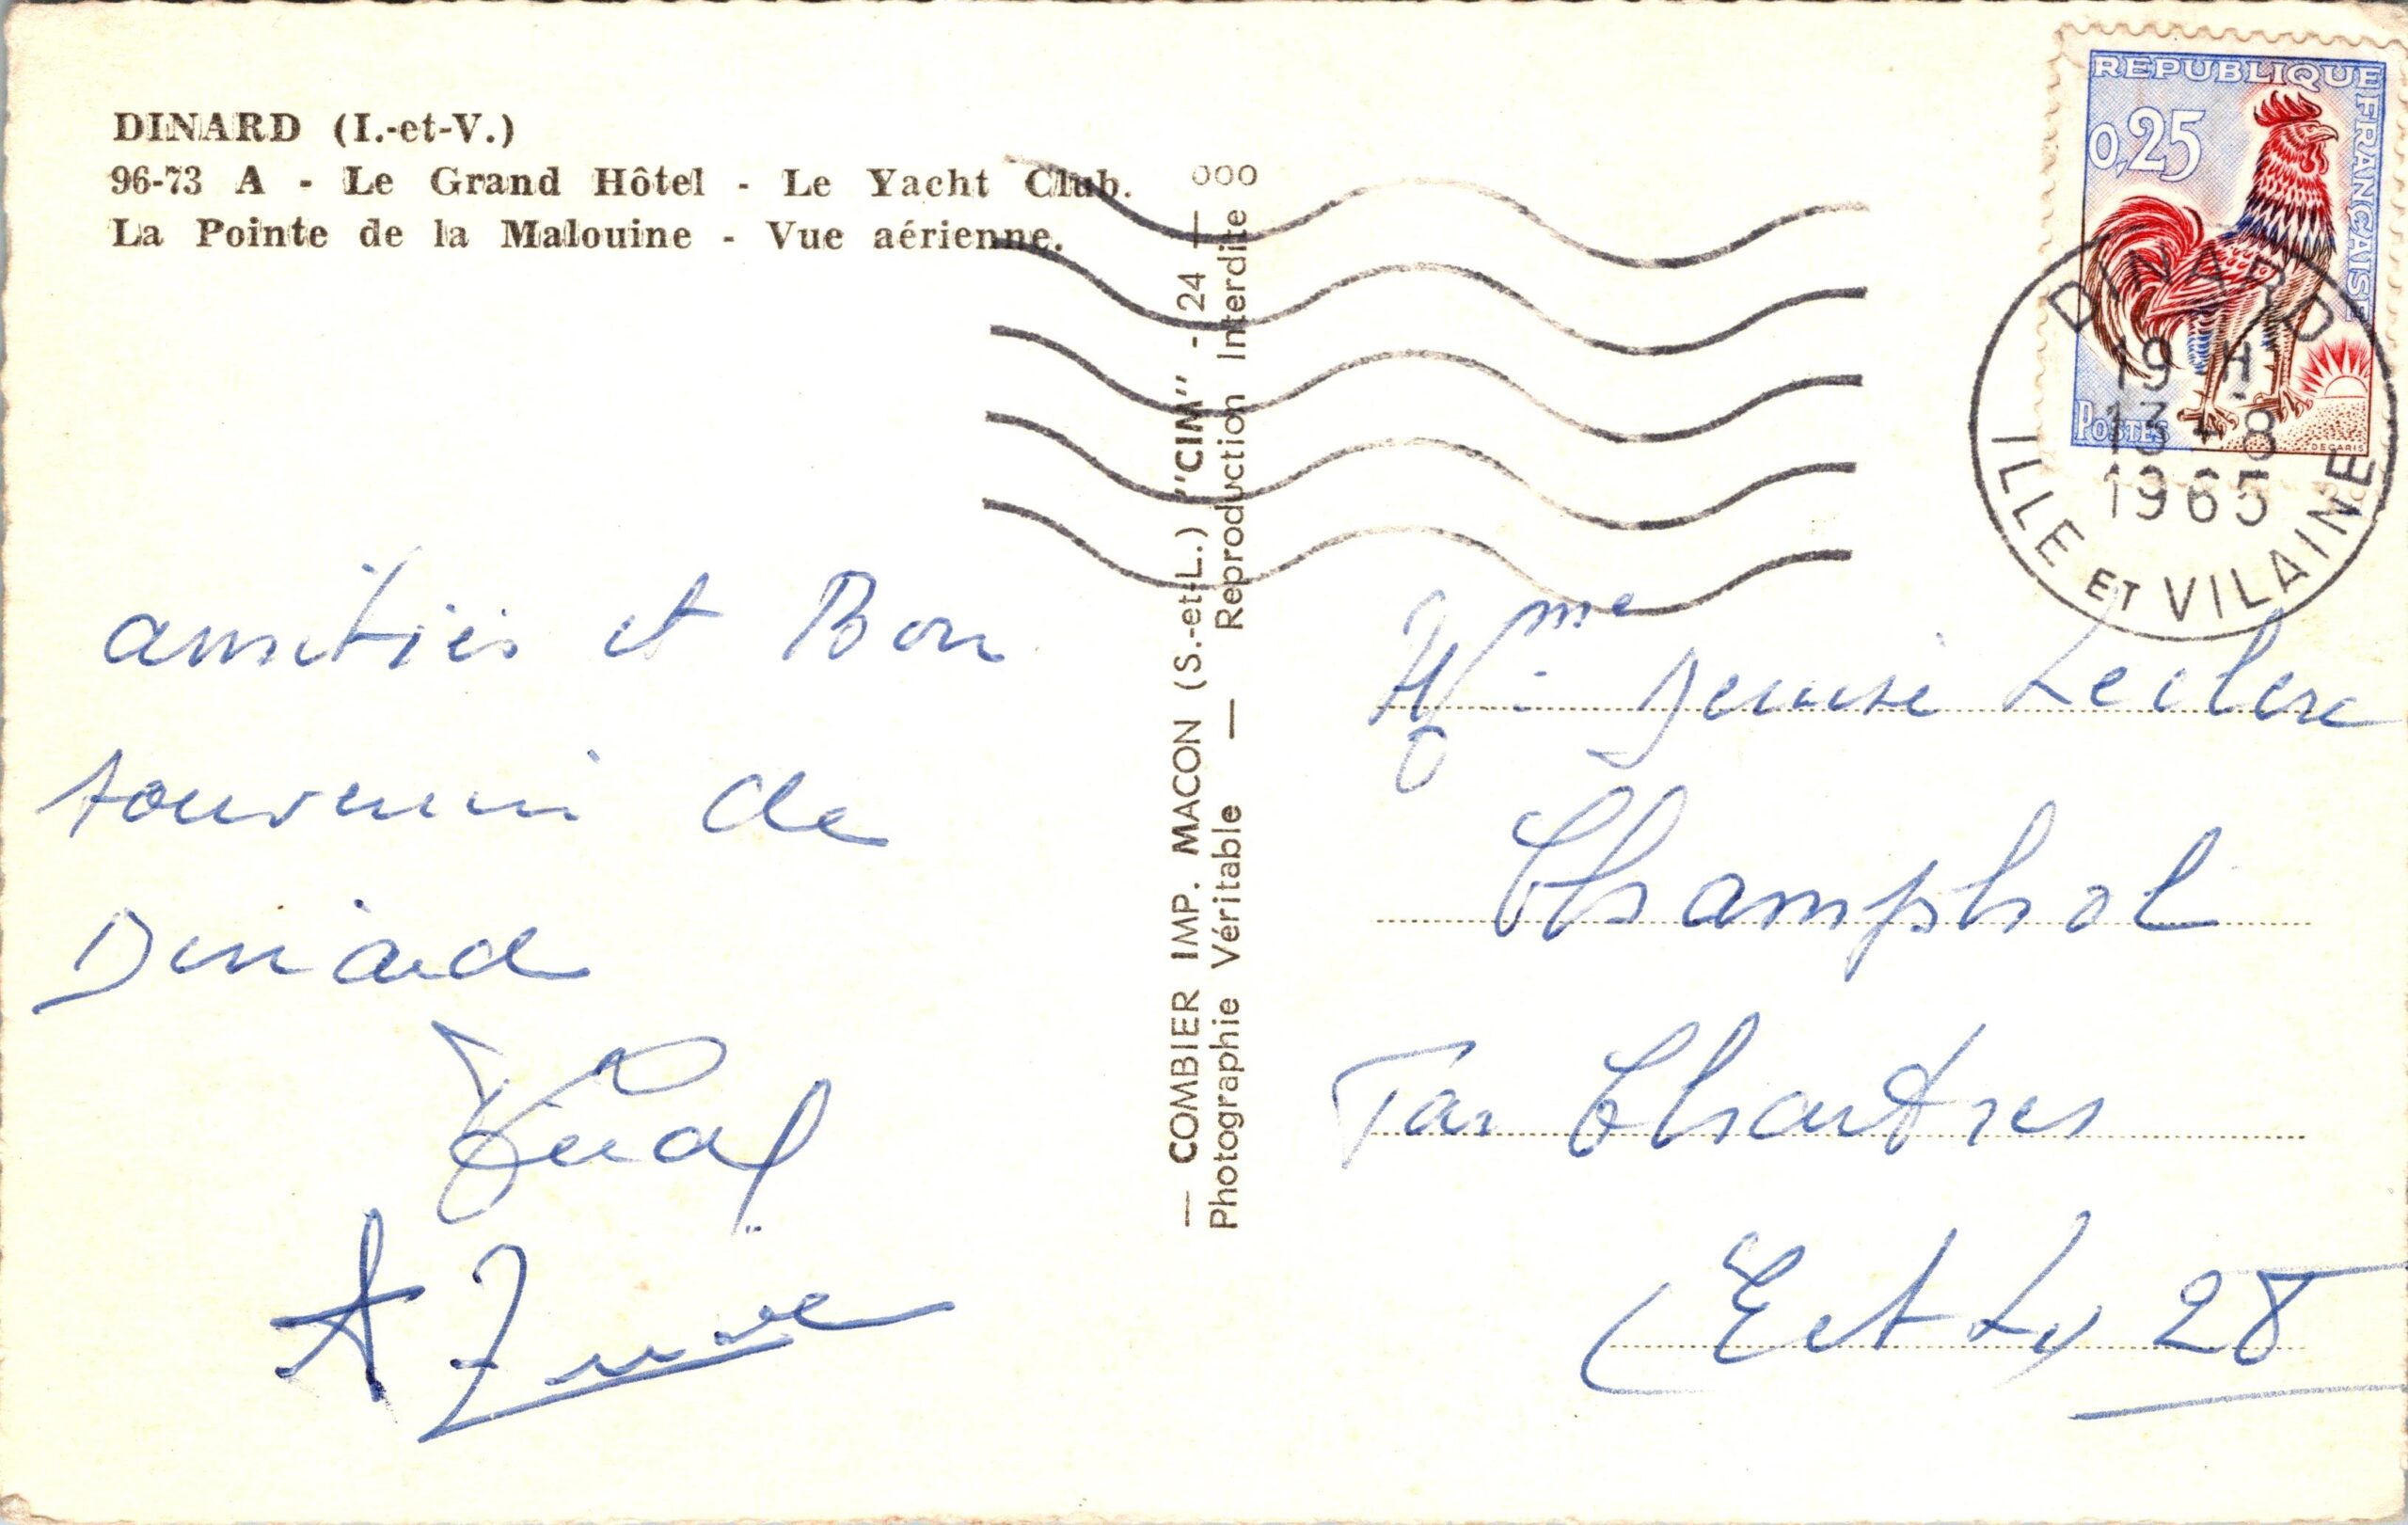 DINARD (I.-et-V.)
96-73 A - Le Grand Hôtel - Le Yacht Club.
La Pointe de la Malouine - Vue aérienne.
amitiés et Bon
souvenir de
Dinard
— COMBIER IMP. MACON (S.-et-L.) "CIM" - 24 —
Photographie Véritable — Reproduction Interdite
000
REPUBLIQUE FRANÇAISE
0,25
POSTES
DECARIS
DINARD
19 H
13 - 8
1965
ILLE ET VILAINE
Mme Denise Leclerc
Champhol
Par Chartres
(E et L) 28